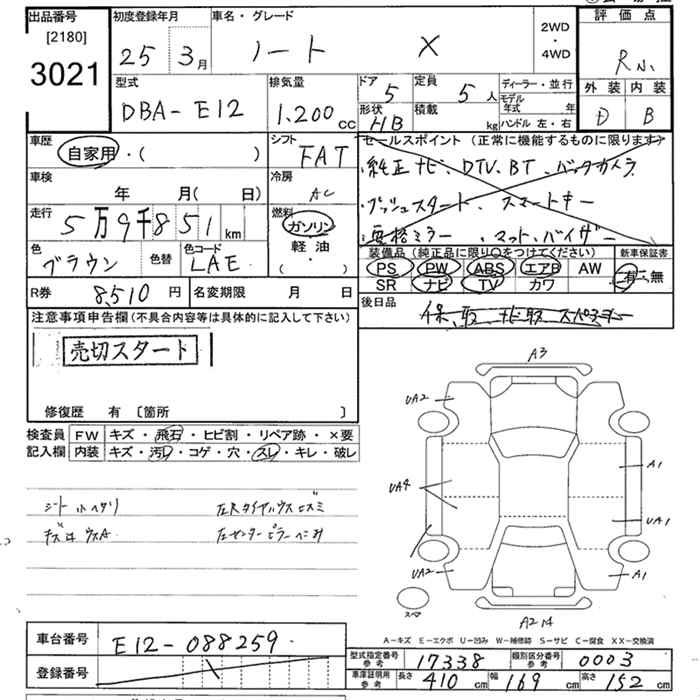 出品番号 初度登録年月 車名・グレード 評価点
[2180] 25 3月 ノート X 2WD ・ 4WD R
3021 外装 内装
型式 排気量 ドア 定員 ディーラー・並行 D B
DBA-E12 1.200cc 5 5人 モデル年式 年
形状 積載 ハンドル 左・右
HB kg
車歴 シフト セールスポイント (正常に機能するものに限ります)
自家用・( ) FAT 純正ナビ、DTV、BT、バックカメラ
車検 冷房 プッシュスタート、スマートキー
年 月( 日) AC
走行 燃料 ドアミラー、マット、バイザー
5万9千851km ガソリン
色 色替 色コード 軽油
ブラウン LAE (・)
装備品 (純正品に限り○をつけてください) 新車保証書
PS PW ABS エアB AW 有・無
SR ナビ TV カワ
R券 8,510円 名変期限 月 日 後日品
注意事項申告欄(不具合内容等は具体的に記入して下さい)
売切スタート
修復歴 有 〔箇所 〕
検査員 FW キズ・飛石・ヒビ割・リペア跡・×要
記入欄 内装 キズ・汚レ・コゲ・穴・スレ・キレ・破レ
シート
A3
UA2
UA4 A1
UA1
UA2 A1
スペア
A2 14
A-キズ E-エクボ U-凹み W-補修跡 S-サビ C-腐食 XX-交換済
車台番号 E12-088259
型式指定番号 参考 17338 類別区分番号 参考 0003
登録番号
車庫証明用 参考 長さ 410cm 幅 169cm 高さ 152cm